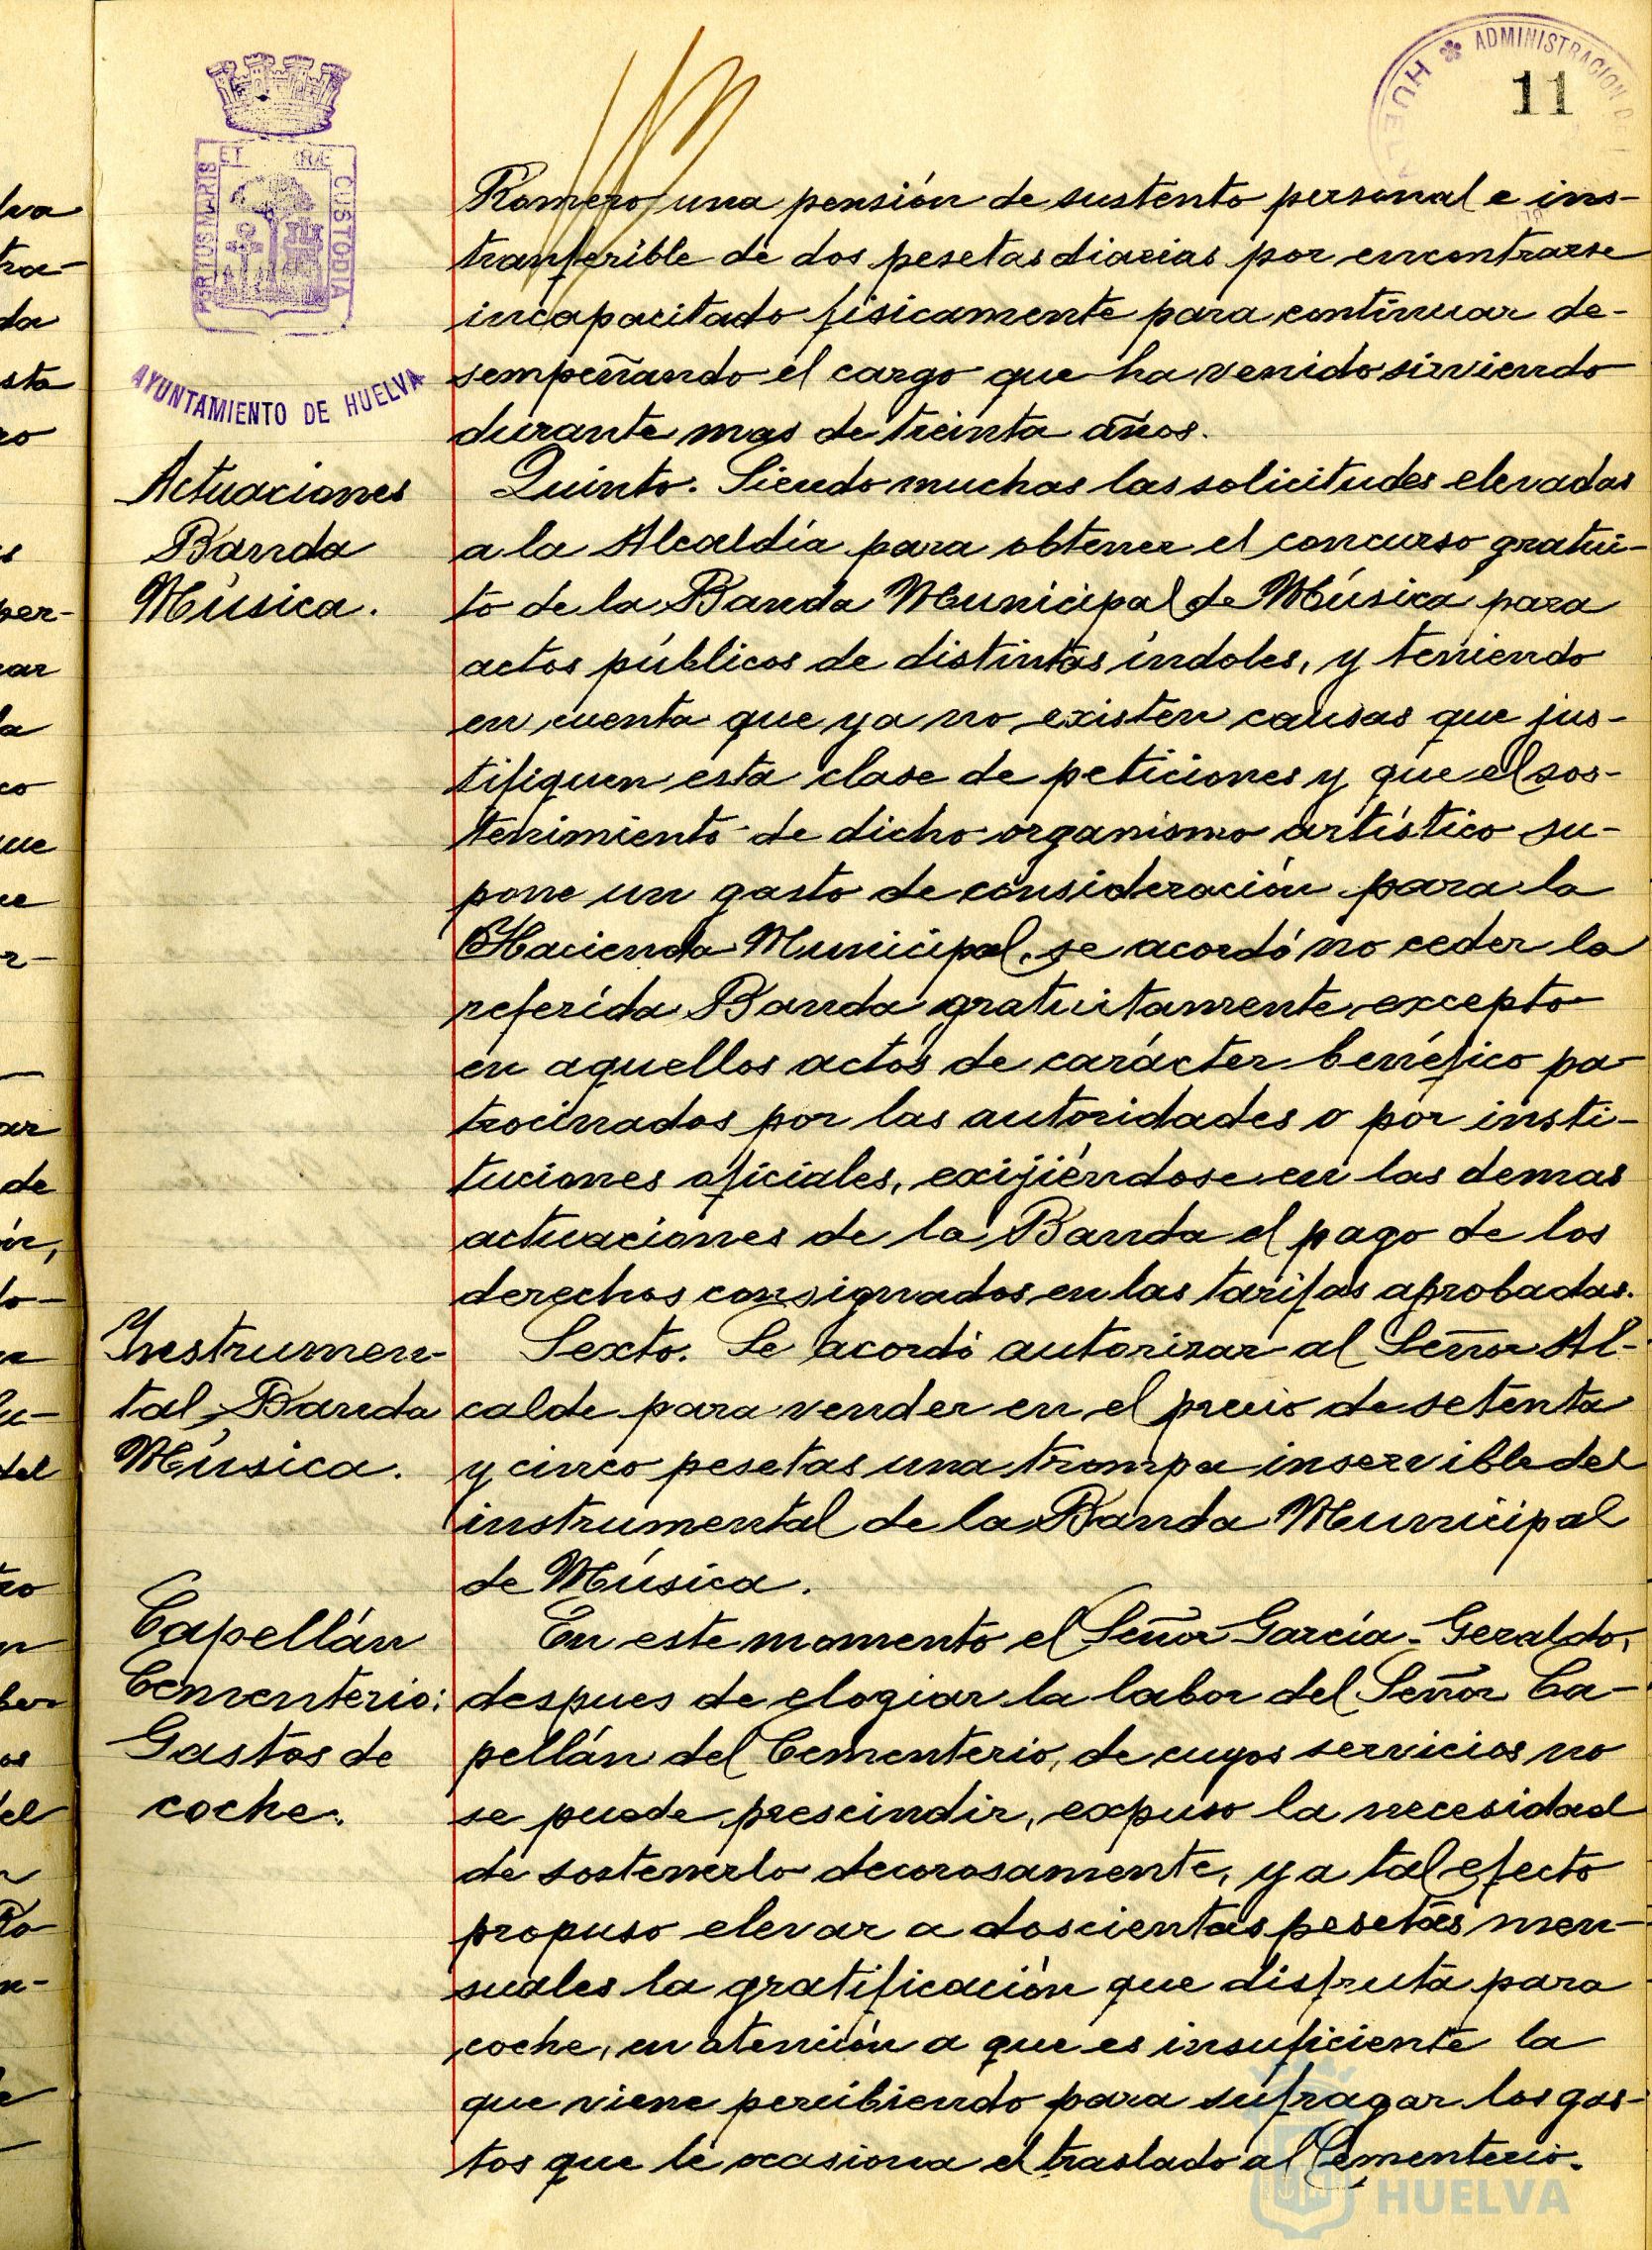 ADMINISTRACION D
HUELV
11
ET
PORTUS MARIS
CUSTODIA
AYUNTAMIENTO DE HUELVA
Romero una pensión de sustento personal e ins-
tranferible de dos pesetas diarias por encontrarse
incapacitado fisicamente para continuar de-
sempeñando el cargo que ha venido sirviendo
durante mas de treinta años.
Actuaciones
Banda
Música.
Quinto. Siendo muchas las solicitudes elevadas
a la Alcaldía para obtener el concurso gratui-
to de la Banda Municipal de Música para
actos públicos de distintas índoles, y teniendo
en cuenta que ya no existen causas que jus-
tifiquen esta clase de peticiones y que el sos-
tenimiento de dicho organismo artístico su-
pone un gasto de consideración para la
Hacienda Municipal, se acordó no ceder la
referida Banda gratuitamente excepto
en aquellos actos de carácter benéfico pa-
trocinados por las autoridades o por insti-
tuciones oficiales, exijiéndose en las demas
actuaciones de la Banda el pago de los
derechos consignados en las tarifas aprobadas.
Instrumen-
tal Banda
Música.
Sexto. Se acordó autorizar al Señor Al-
calde para vender en el precio de setenta
y cinco pesetas una trompa inservible del
instrumental de la Banda Municipal
de Música.
Capellán
Cementerio:
Gastos de
coche.
En este momento el Señor García-Geraldo,
despues de elogiar la labor del Señor Ca-
pellán del Cementerio, de cuyos servicios no
se puede prescindir, expuso la necesidad
de sostenerlo decorosamente, y a tal efecto
propuso elevar a doscientas pesetas men-
suales la gratificación que disfruta para
coche, en atención a que es insuficiente la
que viene percibiendo para sufragar los gas-
tos que le ocasiona el traslado al Cementerio.
HUELVA